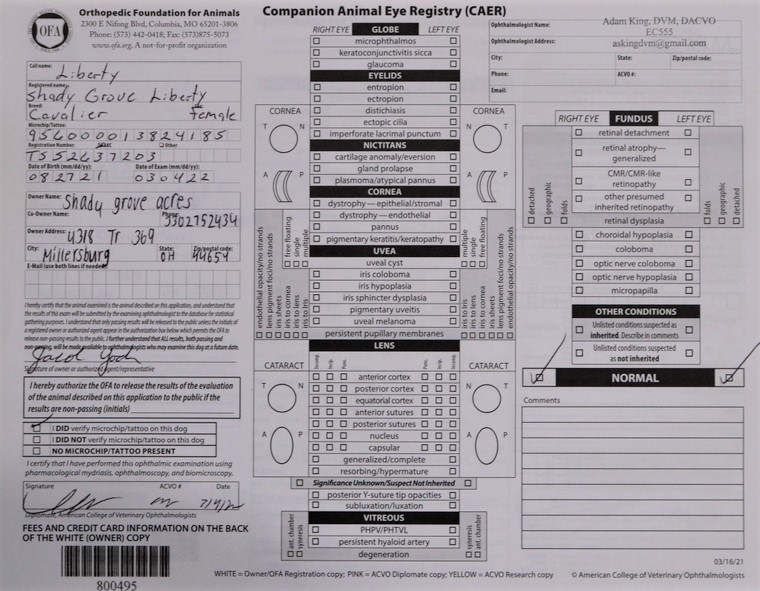 Orthopedic Foundation for Animals
2300 E Nifong Blvd, Columbia, MO 65201-3806
Phone: (573) 442-0418; Fax: (573)875-5073
www.ofa.org, A not-for-profit organization
OFA
Call name:
Liberty
Registered name:
Shady Grove Liberty
Breed:
Cavalier female
Microchip/Tattoo:
Registration Number:
Other
TS52637203
Date of Birth (mm/dd/yy): Date of Exam (mm/dd/yy):
082721 030422
Owner Name: Shady grove acres
Co-Owner Name: Phone: 3302752434
Owner Address: 4318 Tr 369
City: Millersburg State: OH Zip/postal code: 44654
E-Mail (use both lines if needed)
I hereby certify that the animal examined is the animal described on this application, and understand that
the results of this exam will be submitted by the examining ophthalmologist to the database for statistical
gathering purposes. I understand that only passing results will be released to the public unless the initials of
a registered owner or authorized agent appear in the authorization box below which permits the OFA to
release non-passing results to the public. I further understand that ALL results, both passing and
non-passing, will be made available to ophthalmologists who may examine this dog at a future date.
Signature of owner or authorized agent/representative
I hereby authorize the OFA to release the results of the evaluation
of the animal described on this application to the public if the
results are non-passing (initials)
I DID verify microchip/tattoo on this dog
I DID NOT verify microchip/tattoo on this dog
NO MICROCHIP/TATTOO PRESENT
I certify that I have performed this ophthalmic examination using
pharmacological mydriasis, ophthalmoscopy, and biomicroscopy.
Signature ACVO # Date
Diplomate, American College of Veterinary Ophthalmologists
FEES AND CREDIT CARD INFORMATION ON THE BACK
OF THE WHITE (OWNER) COPY
800495
Companion Animal Eye Registry (CAER)
RIGHT EYE GLOBE LEFT EYE
microphthalmos
keratoconjunctivitis sicca
glaucoma
EYELIDS
entropion
ectropion
distichiasis
ectopic cilia
imperforate lacrimal punctum
NICTITANS
cartilage anomaly/eversion
gland prolapse
plasmoma/atypical pannus
CORNEA
dystrophy—epithelial/stromal
dystrophy—endothelial
pannus
pigmentary keratitis/keratopathy
UVEA
uveal cyst
iris coloboma
iris hypoplasia
iris sphincter dysplasia
pigmentary uveitis
uveal melanoma
persistent pupillary membranes
CORNEA
T N
A P
CORNEA
N T
A P
free floating
single
multiple
endothelial opacity/no strands
lens pigment foci/no strands
iris sheets
iris to cornea
iris to lens
iris to iris
multiple
single
free floating
iris to iris
iris to lens
iris to cornea
iris sheets
lens pigment foci/no strands
endothelial opacity/no strands
LENS
Incomp. Incip. Punc. Punc. Incip. Incomp.
anterior cortex
posterior cortex
equatorial cortex
anterior sutures
posterior sutures
nucleus
capsular
generalized/complete
resorbing/hypermature
CATARACT
T N
A P
CATARACT
N T
A P
Significance Unknown/Suspect Not Inherited
posterior Y-suture tip opacities
subluxation/luxation
VITREOUS
PHPV/PHTVL
persistent hyaloid artery
degeneration
ant. chamber
syneresis
syneresis
ant. chamber
Ophthalmologist Name: Adam King, DVM, DACVO
EC555
Ophthalmologist Address: askingdvm@gmail.com
City: State: Zip/postal code:
Phone: ACVO #:
Email:
RIGHT EYE FUNDUS LEFT EYE
retinal detachment
retinal atrophy—
generalized
CMR/CMR-like
retinopathy
other presumed
inherited retinopathy
retinal dysplasia
detached
geographic
folds
folds
geographic
detached
choroidal hypoplasia
coloboma
optic nerve coloboma
optic nerve hypoplasia
micropapilla
OTHER CONDITIONS
Unlisted conditions suspected as
inherited. Describe in comments
Unlisted conditions suspected
as not inherited
NORMAL
Comments
03/16/21
WHITE = Owner/OFA Registration copy; PINK = ACVO Diplomate copy; YELLOW = ACVO Research copy
© American College of Veterinary Ophthalmologists